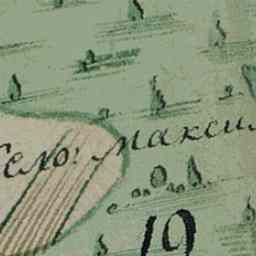 Село: макси
19